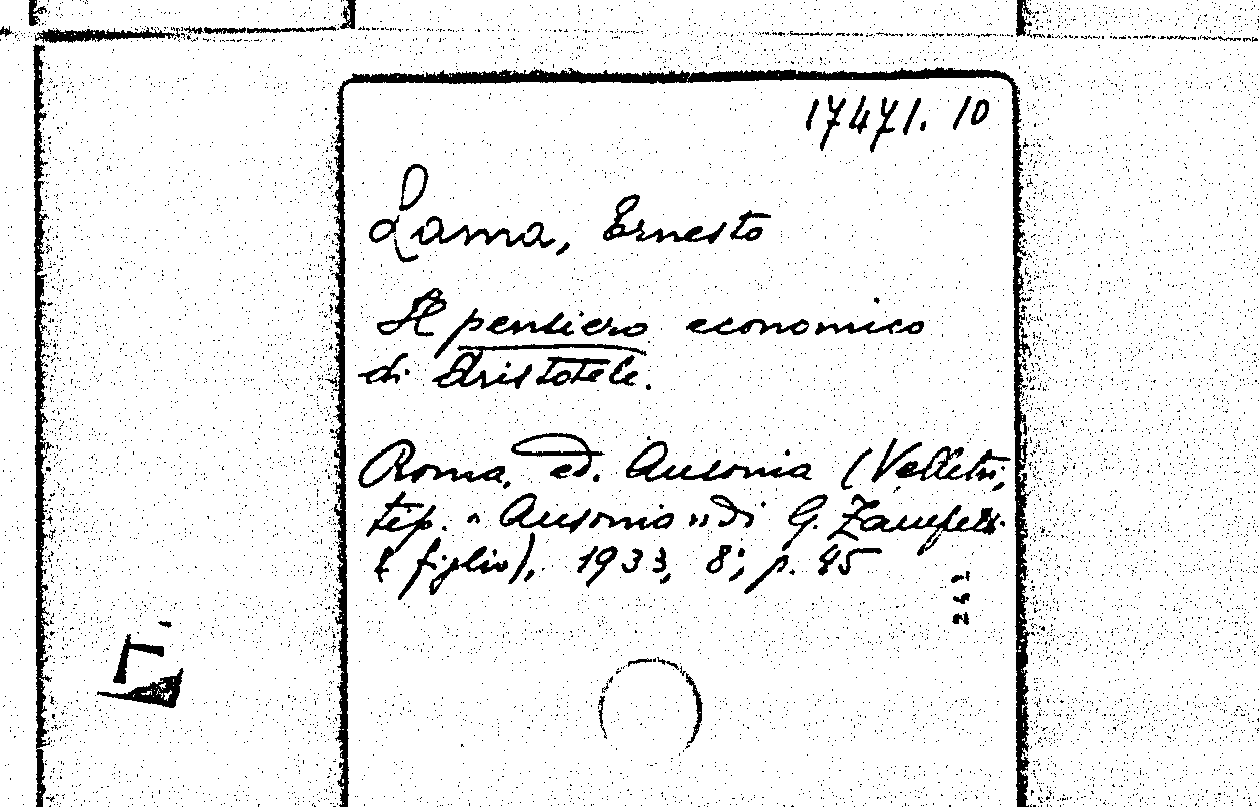 17471. 10
Lama, Ernesto
Il pensiero economico
di Aristotele.
Roma, ed. Ausonia (Velletri,
tip. "Ausonia" di G. Zampetti
& figlio), 1933, 8°; p. 45